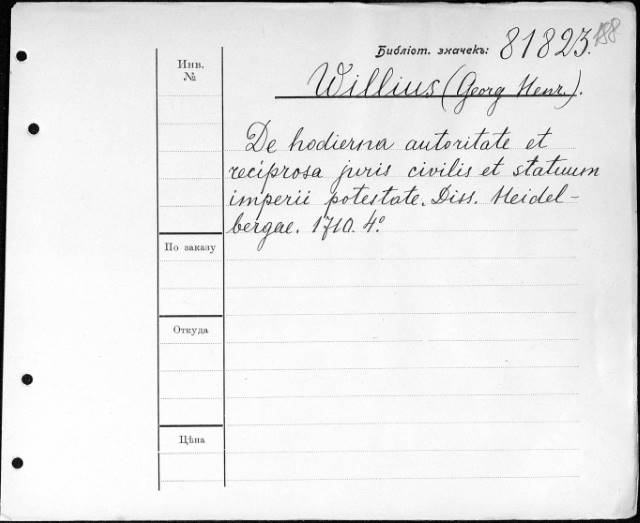 Библіот. значекъ: 81823. 188
Инв.
№
Willius (Georg Henr.).
De hodierna autoritate et
reciprosa juris civilis et statuum
imperii potestate. Diss. Heidel-
bergae. 1710. 4°
По заказу
Откуда
Цѣна